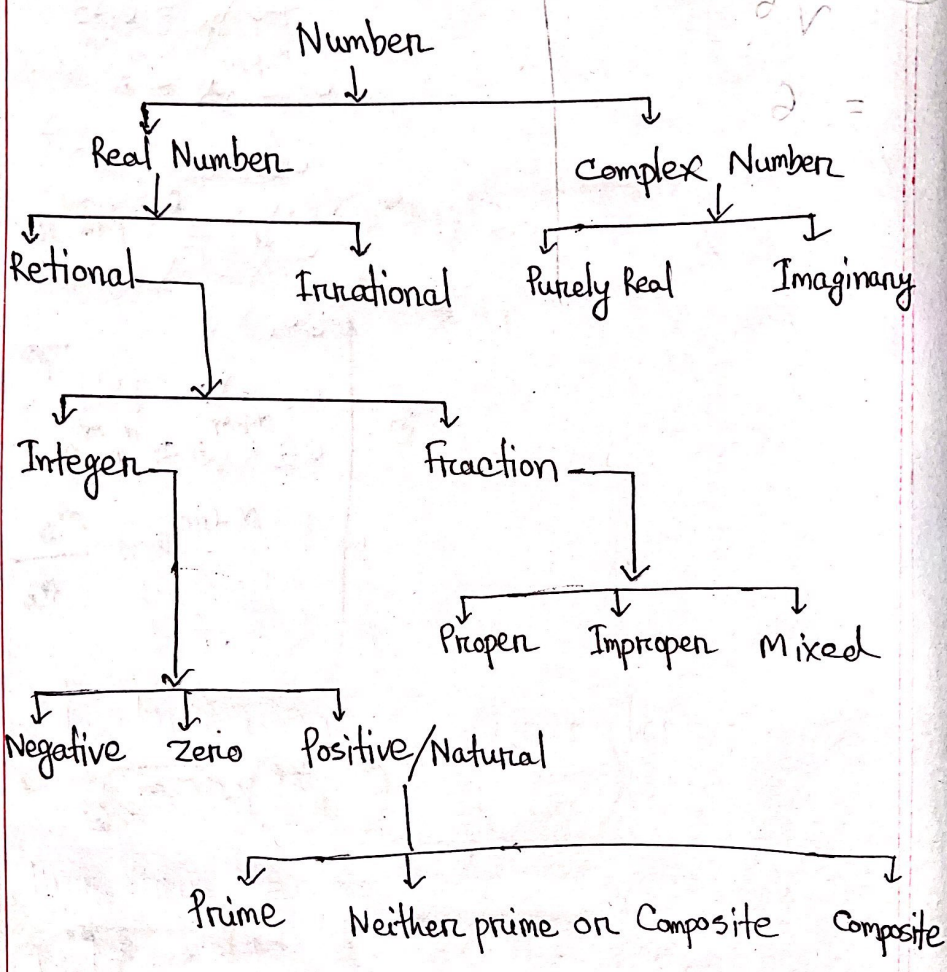 Number
Real Number
Complex Number
Retional
Irrational
Purely Real
Imaginary
Integer
Fraction
Proper
Improper
Mixed
Negative
Zero
Positive/Natural
Prime
Neither prime or Composite
Composite